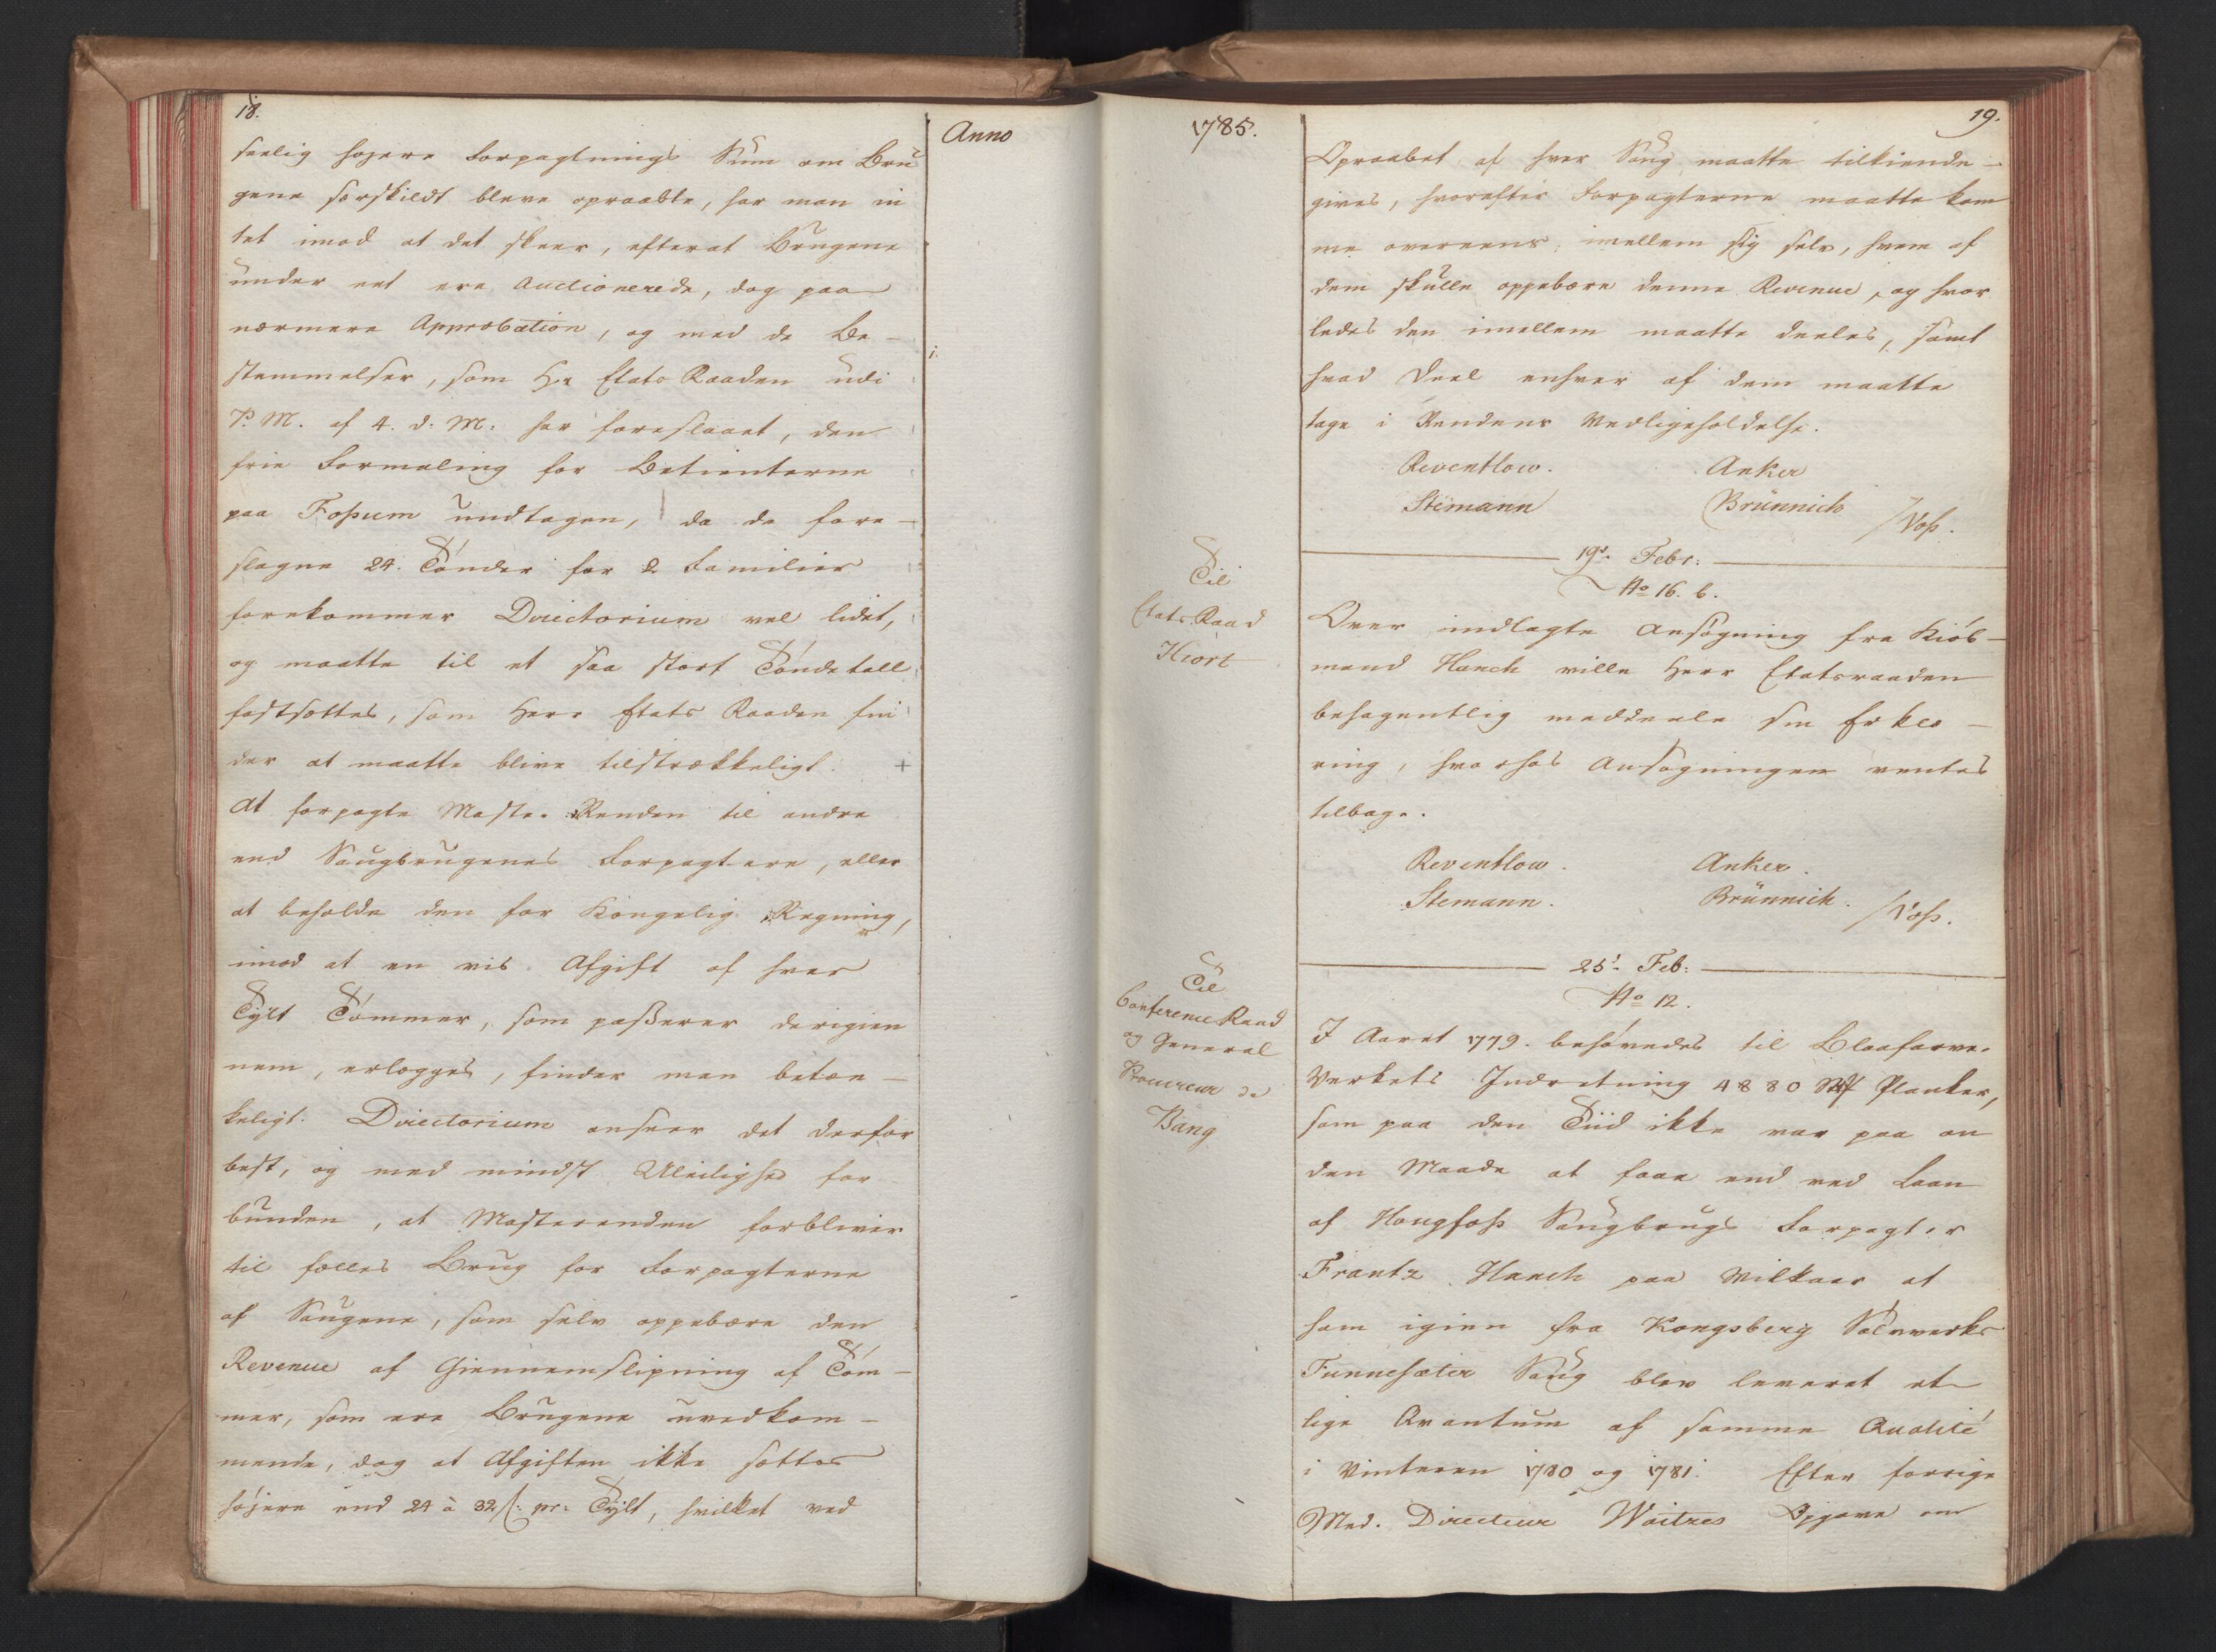 18.
Anno
seelig højere Forpagtnings Sum om Bru
gene særskildt bleve opraabte, har man in
tet imod at det skeer, efterat Brugene
under eet ere Auctionerede, dog paa
nærmere Approbation, og med de Be-
stemmelser, som Hr Etats Raaden udi
P. M. af 4. d: M: har foreslaaet, den
frie Formaling for Betienterne
paa Foßum undtagen, da de fore-
slagne 24. Tønder for 2 Familier
forekommer Directorium vel lidet,
og maatte til et saa stort Tøndetall
fastsættes, som Herr Etats Raaden fin
der at maatte blive tilstrækkeligt. +
At forpagte Maste-Renden til andre
end Saugbrugenes Forpagtere, eller
at beholde den for Kongelig Regning,
imod at en vis Afgift af hver
Tylt Tømmer, som paßerer derigien
nem, erlægges, finder man betæn-
keligt. Directorium anseer det derfor
best, og med mindst Uleilighed for
bunden, at Masterenden forbliver
til fælles Brug for Forpagterne
af Saugene, som selv oppebære den
Revenue af Giennemslipning af Tøm-
mer, som ere Brugene uvedkom-
mende, dog at Afgiften ikke sættes
højere end 24 à 32 s: pr: Tylt, hvilket ved
1785.
19.
Opraabet af hver Saug maatte tilkiende-
gives, hvorefter Forpagterne maatte kom
me overeens imellem sig selv, hvem af
dem skulle oppebære denne Revenue, og hvor
ledes den imellem maatte deeles, samt
hvad Deel enhver af dem maatte
tage i Rendens Vedligeholdelse.
Reventlow. Anker
Stemann Brünnich /Voß.
19de Febr:
No 16. b.
Til
Etats Raad
Hiort
Over indlagte Ansøgning fra Kiøb-
mand Hanch ville Herr Etatsraaden
behagentlig meddeele sin Erklæ-
ring, hvorhos Ansøgningen ventes
tilbage.
Reventlow. Anker.
Stemann. Brünnich. /Voß.
25de Feb:
No 12.
Til
Conference Raad
og General
Procureur de
Bang
I Aaret 1779. behøvedes til Blaafarve-
Verkets Indretning 4880 Planker,
som paa den Tiid ikke var paa an
den Maade at faae end ved Laan
af Hougfoß Saugbrugs Forpagter
Frantz Hanch paa Wilkaar at
ham igien fra Kongsberg Sølvverks
Funnesæter Saug blev leveret et
lige Qvantum af samme Qualité
i Vinteren 1780 og 1781. Efter forrige
Med. Directeur Waitzes Opgave om